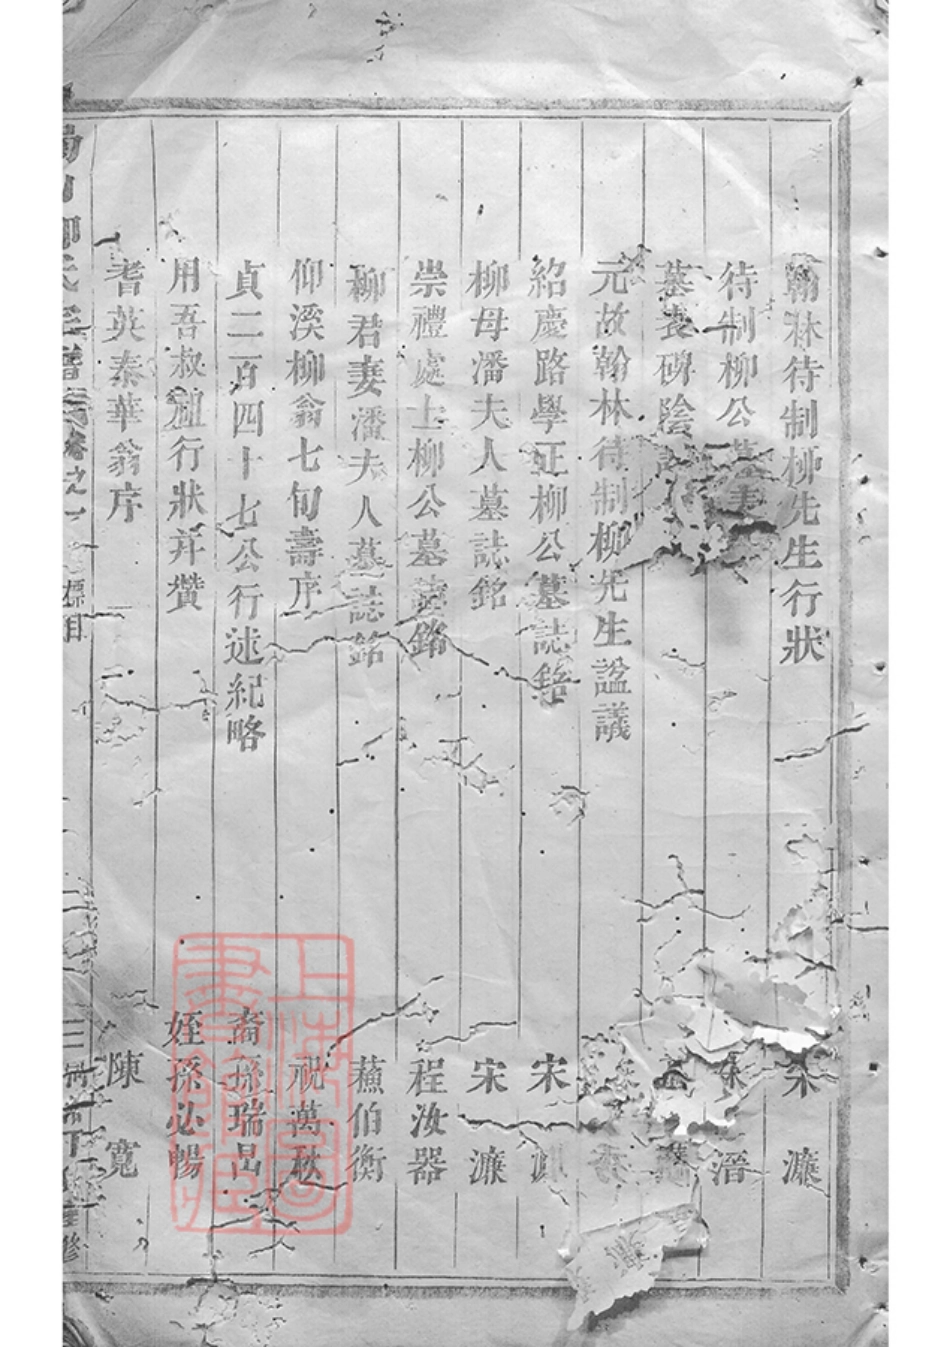 翰林待制柳先生行狀 宋 濂
待制柳公墓表 溍
墓表碑陰
元故翰林待制柳先生諡議
紹慶路學正柳公墓誌銘 宋 濂
柳母潘夫人墓誌銘 宋 濂
崇禮處士柳公墓誌銘 程汝器
柳君妻潘夫人墓誌銘 蘇伯衡
仰溪柳翁七旬壽序 祝萬秋
貞二百四十七公行述紀略 裔孫瑞出
用吾叔翁行狀并攢 姪孫必暢
耆英泰華翁序 陳 寬
柳氏宗譜 卷之一 標目 三 重修
上海圖書館藏